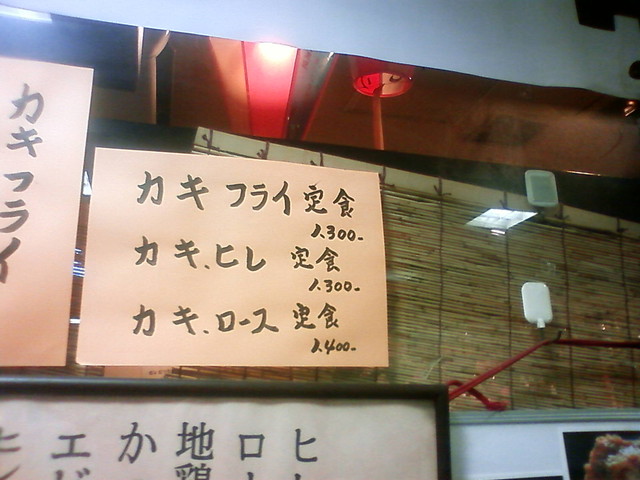 カキフライ
カキフライ定食
1.300-
カキ、ヒレ 定食
1.300-
カキ、ロース 定食
1.400-
ヒ
ロ
地鶏
か
エビ